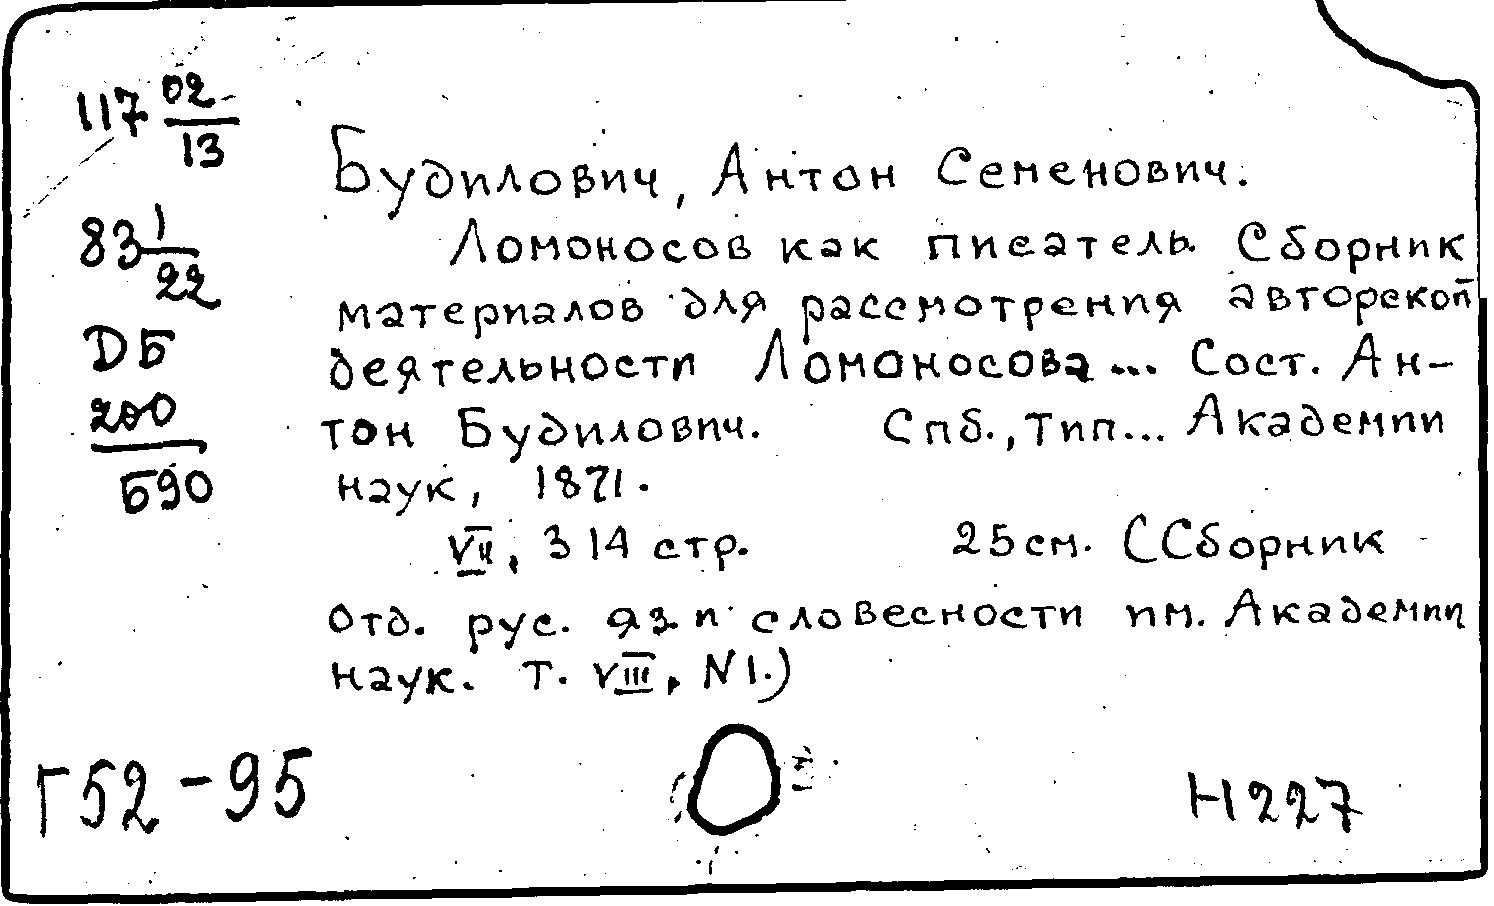 117 02/13
83 1/22
ДБ
200/Б90
Будилович, Антон Семенович.
Ломоносов как писатель. Сборник
материалов для рассмотрения авторской
деятельности Ломоносова... Сост. Ан-
тон Будилович. Спб., Тип... Академии
наук, 1871.
VII, 314 стр. 25см. (Сборник
Отд. рус. яз. и словесности им. Академии
наук. Т. VIII, N1.)
Г52-95
Н227